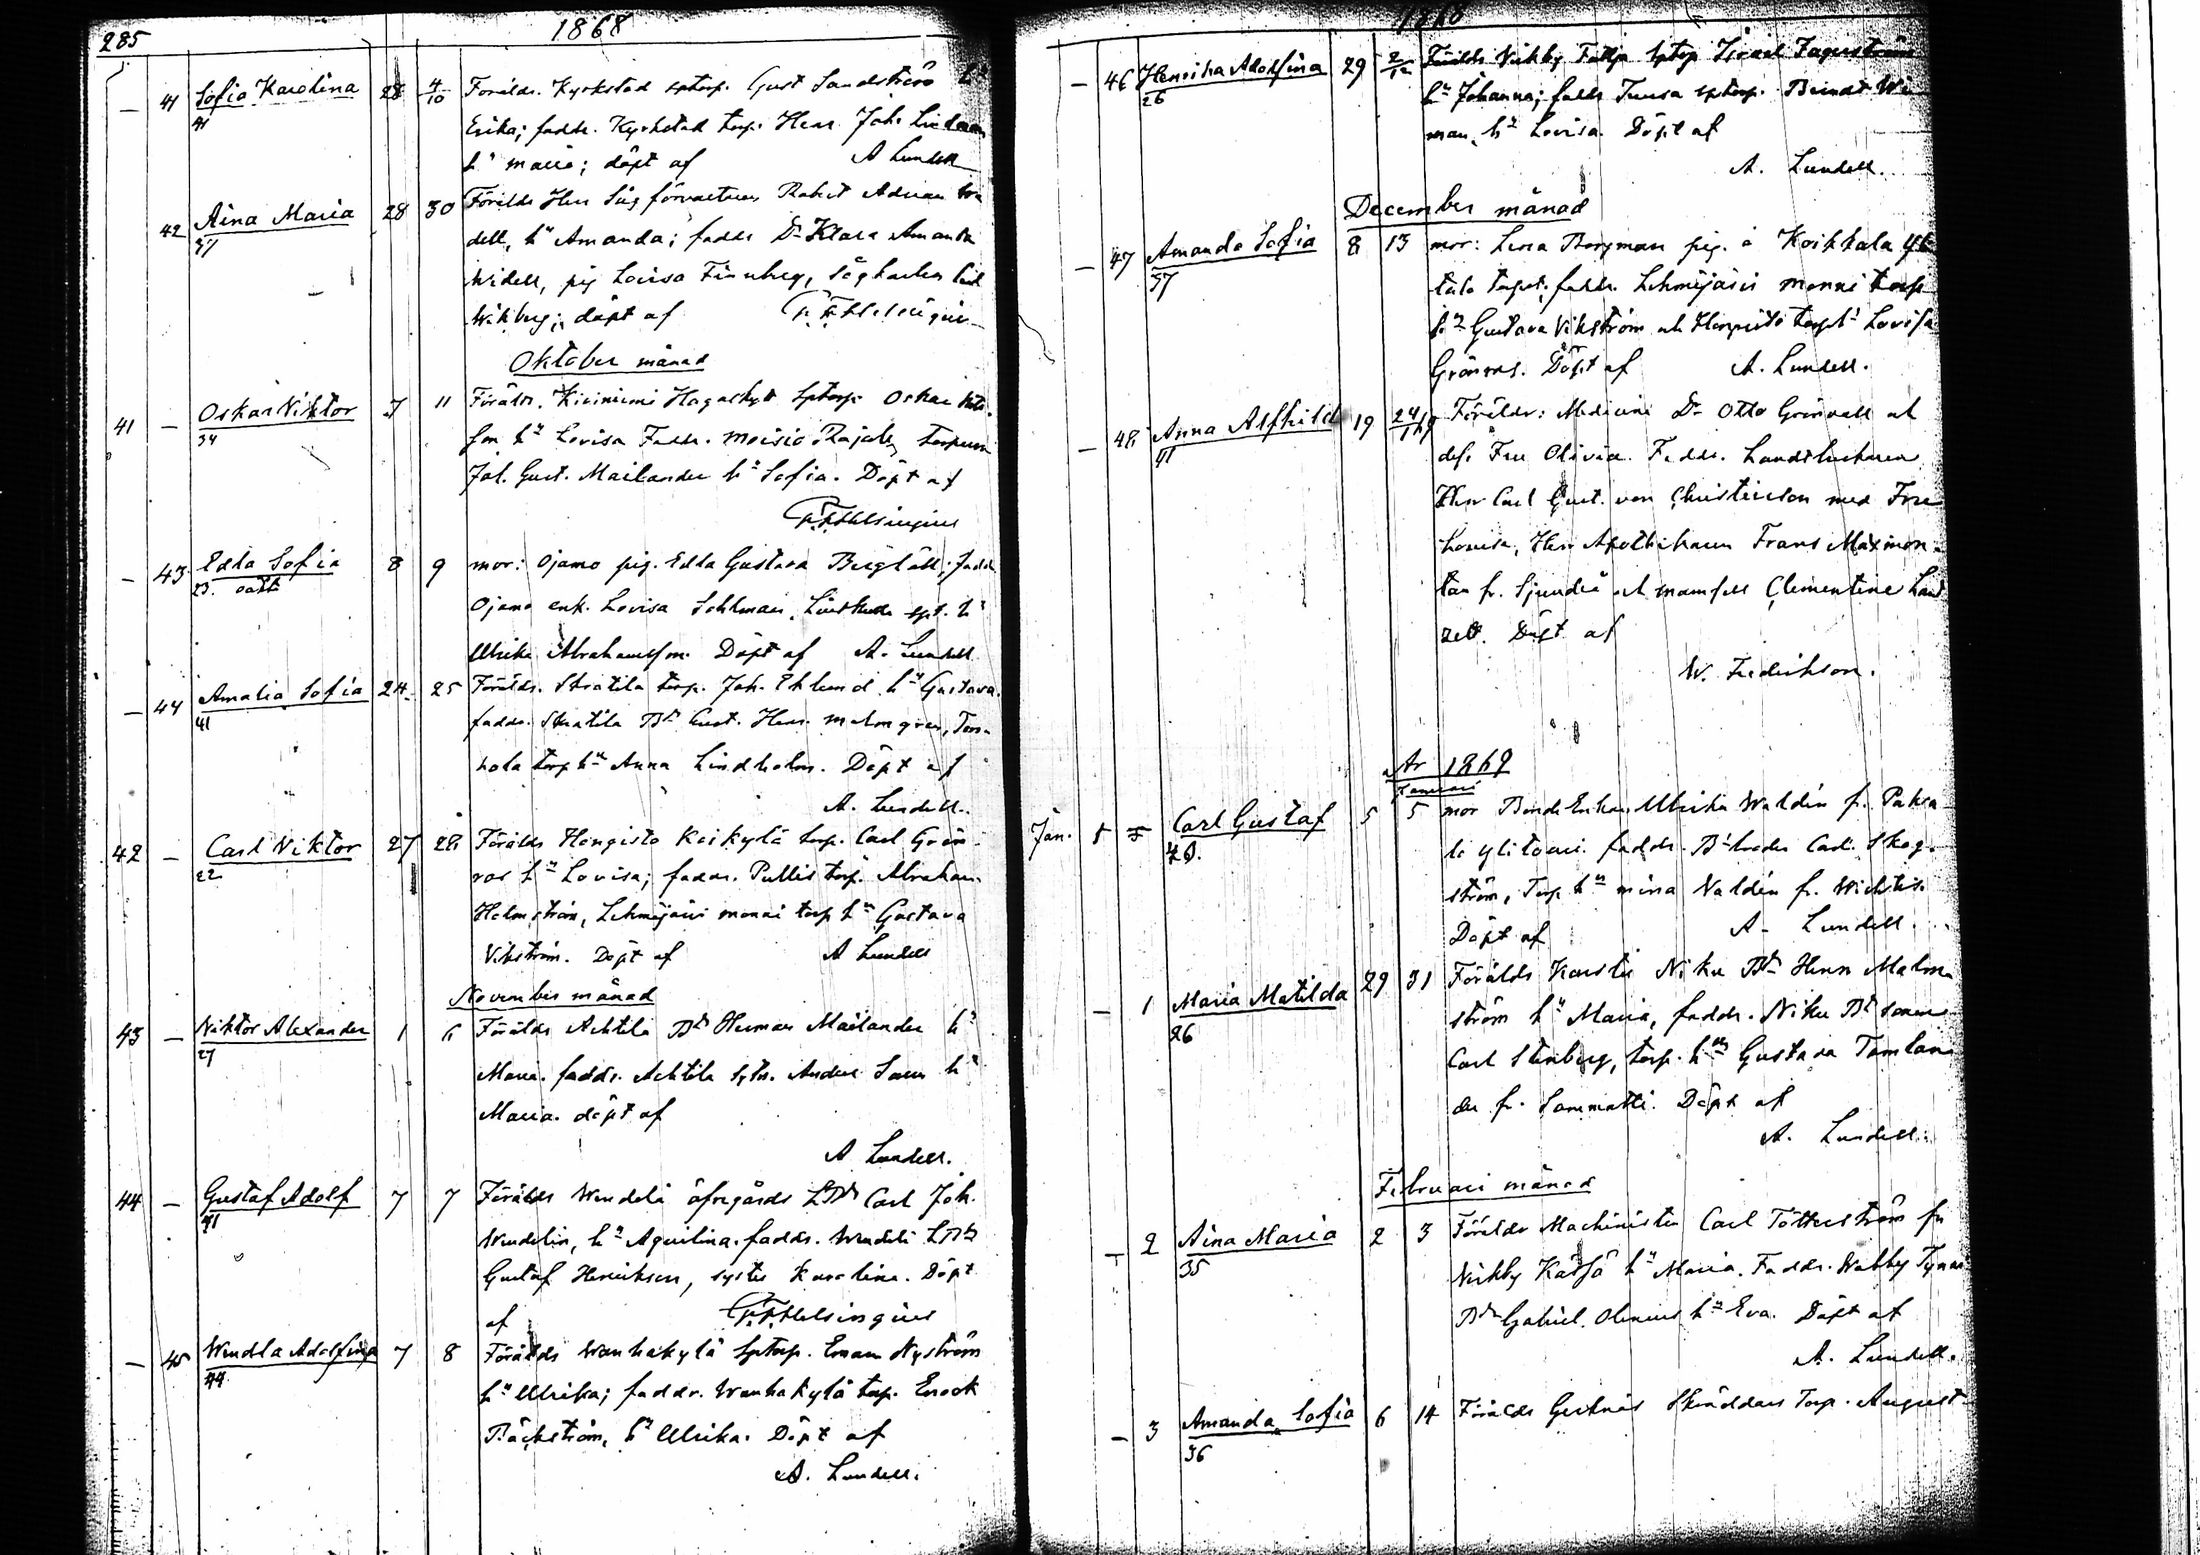 285
1868
— 41 Sofia Karolina 28 4/10 Föräldr. Kyrkstad sptorp. Gust Sandström hu
41
Erika; faddr. Kyrkstad torp. Henr. Joh. Lindman
hu Maria; döpt af A Lundell
42 Aina Maria 28 30 Föräldr Herr Såg förvaltaren Robert Adrian
37
dell, hu Amanda; faddr Dr Klara Amanda
Widell, pig Lovisa Finnberg, Sågkarlen
Wikberg; döpt af F.F. Helsingius
Oktober månad
41 — Oskar Viktor 7 11 Föräldr. Kiviniemi Hagaskytt Sptorp. Oskar
34
son hu Lovisa Faddr. Moisio Rajala torparen
Joh. Gust. Mailander hu Sofia. Döpt af
F.F. Helsingius
— 43 Edla Sofia 8 9 mor: Ojamo pig. Edla Gustava Bergfält; fadd
23. oäkta
Ojamo enk. Lovisa Sohlman, spt. hu
Ulrika Abrahamsson. Döpt af A. Lundell
— 44 Amalia Sofia 24 25 Föräldr. Skratila torp. Joh. Eklund hu Gustava.
41
faddr. Skratila Bd Gust. Henr. Malmgren, Tors-
hola torp hu Anna Lindholm. Döpt af
A. Lundell.
42 — Carl Viktor 27 28 Föräldr Hongisto Keikylä torp. Carl Grön-
22
roos hu Lovisa; faddr. Pullis torp. Abraham
Holmström, Lehmijärvi monni torp hu Gustava
Vikström. Döpt af A Lundell
November månad
43 — Viktor Alexander 1 6 Föräldr Achtila Bd Herman Mailander hu
27
Maria. faddr. Achtila Anders hu
Maria. döpt af
A Lundell.
44 — Gustaf Adolf 7 7 Föräldr Wendelä öfregårds LBd Carl Joh.
41
Wendelin, hu Aqvilina. faddr. Wendelä LBd
Gustaf Henriksson, syster Karolina. Döpt
af F.F. Helsingius
— 45 Wendla Adolfina 7 8 Föräldr Wanhakylä Sptorp. Eman Nyström
44
hu Ulrika; faddr. Wanhakylä torp. Enock
Bäckström, hu Ulrika. Döpt af
A. Lundell.
1868
— 46 Henrika Adolfina 29 2/12 Föräldr Virkby sptorp Israel Fagerström
26
hu Johanna; faddr sptorp. Berndt Wi-
man, hu Lovisa. Döpt af
A. Lundell.
December månad
— 47 Amanda Sofia 8 13 mor: Lena Borgman pig. å Koikkala
37
talo torpet; faddr. Lehmijärvi monni torp
hu Gustava Vikström och Hongisto torp hu Lovisa
Grönroos. Döpt af A. Lundell.
— 48 Anna Alfhild 19 24/1 69 Föräldr: Medicine Dr Otto Grönvall och
41
dess Fru Olivia. Faddr. Landtsekreteraren
Herr Carl Gust. von Christierson med Fru
Lovisa, Herr Apothekaren Frans Maximon-
tan fr. Sjundeå och mamsell Clementine
zett. Döpt af
W. Fredrikson.
År 1869
Januari
Jan. 1 — Carl Gustaf 5 5 mor Bonde Enkan Ulrika Waldén fr. Paksa-
40.
lo Ylitoari. faddr. Bd broder Carl. Skog-
ström, Torp. hu mina Valdén fr. Wichtis.
Döpt af A. Lundell.
— 1 Maria Matilda 29 31 Föräldr Karstu Niku Bd Henr Malm-
26
ström hu Maria, faddr. Niku Bd sonen
Carl Stenberg, torp. hu Gustava Tamlan-
der fr. Sammatti. Döpt af
A. Lundell.
Februari månad
— 2 Aina Maria 2 3 Föräldr Machinisten Carl Tötterström fr
35
Virkby Kätsä hu Maria. Faddr. Wabby
Bd Gabriel. Olenius hu Eva. Döpt af
A. Lundell.
— 3 Amanda Sofia 6 14 Föräldr Gerknäs Skräddars Torp. August
36